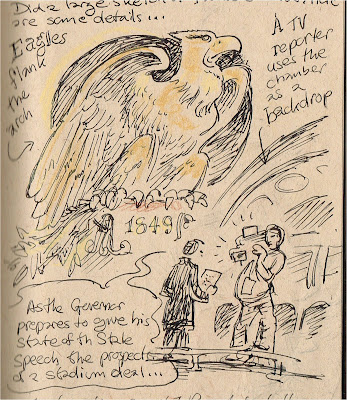 Did a large sketch
are some details...
Eagles
flank
the
arch
A TV
reporter
uses the
chamber
as a
backdrop
1849
As the Governor
prepares to give his
State of th State
speech the prospects
of a stadium deal...